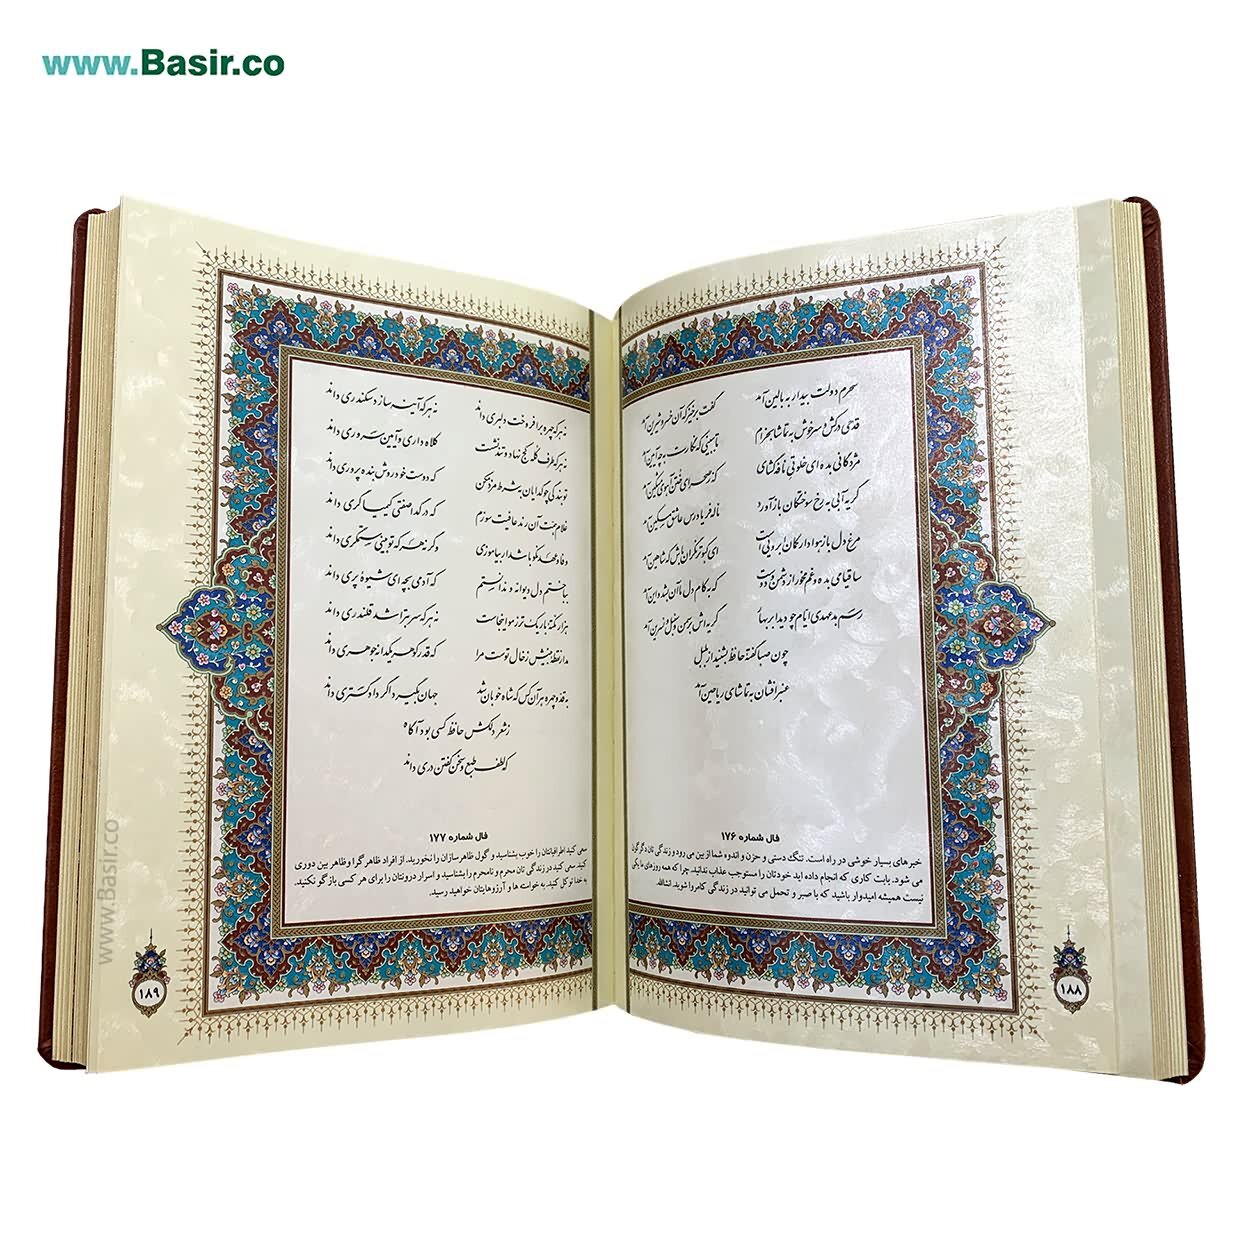 www.Basir.co
سحرم دولت بیدار به بالین آمد گفت برخیز که آن خسرو شیرین آمد
قدحی درکش و سرخوش به تماشا بخرام تا ببینی که نگارت به چه آیین آمد
مژدگانی بده ای خلوتی نافه گشای که ز صحرای ختن آهوی مشکین آمد
گریه آبی به رخ سوختگان باز آورد ناله فریادرس عاشق مسکین آمد
مرغ دل باز هوادار کمان ابروئی است ای کبوتر نگران باش که شاهین آمد
ساقیا می بده و غم مخور از دشمن و دوست که به کام دل ما آن بشد و این آمد
رسم بدعهدی ایام چو دید ابر بهار گریه اش بر سمن و سنبل و نسرین آمد
چون صبا گفتهٔ حافظ بشنید از بلبل
عنبر افشان به تماشای ریاحین آمد
فال شماره ۱۷۶
خبرهای بسیار خوشی در راه است. تنگ دستی و حزن و اندوه شما از بین می رود و زندگی تان دگرگون
می شود. بابت کاری که انجام داده اید خودتان را مستوجب عذاب ندانید. چرا که همه روزهای ما یکی
نیست همیشه امیدوار باشید که با صبر و تحمل می توانید در زندگی کامروا شوید. انشاالله.
۱۸۸
نه هر که چهره برافروخت دلبری داند نه هر که آینه سازد سکندری داند
نه هر که طرف کله کج نهاد و تند نشست کلاه داری و آیین سروری داند
تو بندگی چو گدایان به شرط مزد مکن که دوست خود روش بنده پروری داند
غلام همت آن رند عافیت سوزم که در گدا صفتی کیمیاگری داند
وفا و عهد نکو باشد ار بیاموزی وگرنه هر که تو بینی ستمگری داند
بباختم دل دیوانه و ندانستم که آدمی بچه ای شیوهٔ پری داند
هزار نکتهٔ باریک تر ز مو اینجاست نه هر که سر بتراشد قلندری داند
مدار نقطه بینش ز خال توست مرا که قدر گوهر یکدانه جوهری داند
به قد و چهره هر آن کس که شاه خوبان شد جهان بگیرد اگر دادگستری داند
ز شعر دلکش حافظ کسی بود آگاه
که لطف طبع و سخن گفتن دری داند
فال شماره ۱۷۷
سعی کنید اطرافیانتان را خوب بشناسید و گول ظاهرسازان را نخورید. از افراد ظاهرگرا و ظاهر بین دوری
کنید. سعی کنید در زندگی تان محرم و نامحرم را بشناسید و اسرار درونتان را برای هر کسی بازگو نکنید.
به خدا توکل کنید. به خواسته ها و آرزوهایتان خواهید رسید.
۱۸۹
www.Basir.co